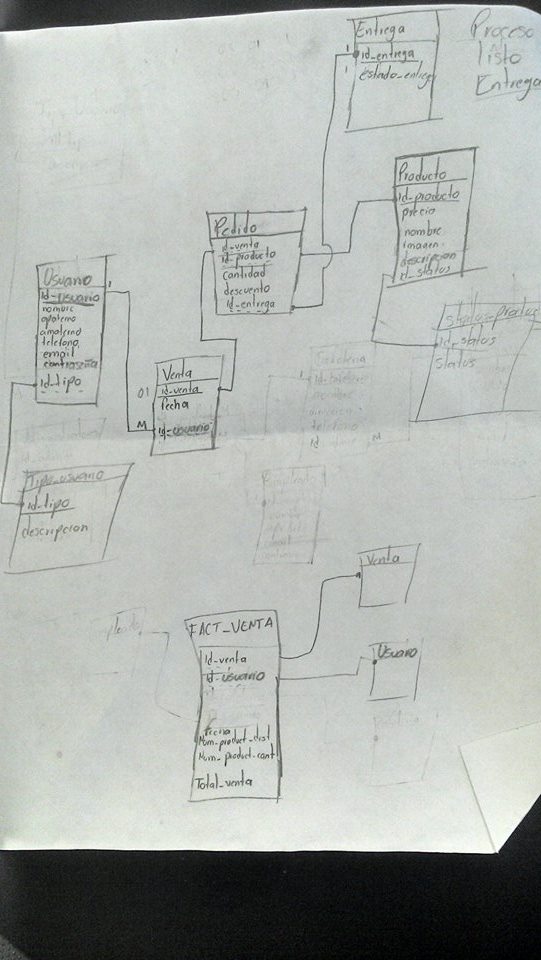 Entrega
id_entrega
estado_entrega
Proceso
listo
Entrega
Producto
id_producto
precio
nombre
imagen
descripcion
id_status
Pedido
id_venta
id_producto
cantidad
descuento
id_entrega
Usuario
id_usuario
nombre
apaterno
amaterno
telefono
email
contraseña
id_tipo
1
1
1
Venta
id_venta
fecha
id_usuario
01
M
id_status
status
Tipo_usuario
id_tipo
descripcion
Venta
FACT_VENTA
id_venta
id_usuario
fecha
Num_product_dist
Num_product_cant
Total_venta
Usuario